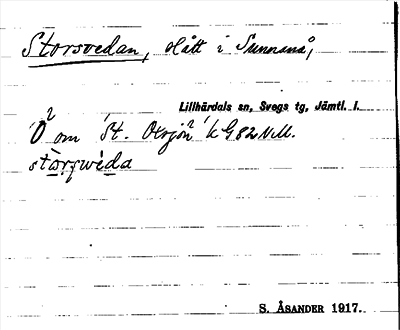 Storsvedan, slått i Sunnanå,
Lillhärdals sn, Svegs tg, Jämtl. l.
Ö om St. Oxsjön k G 82 NM.
S. ÅSANDER 1917.